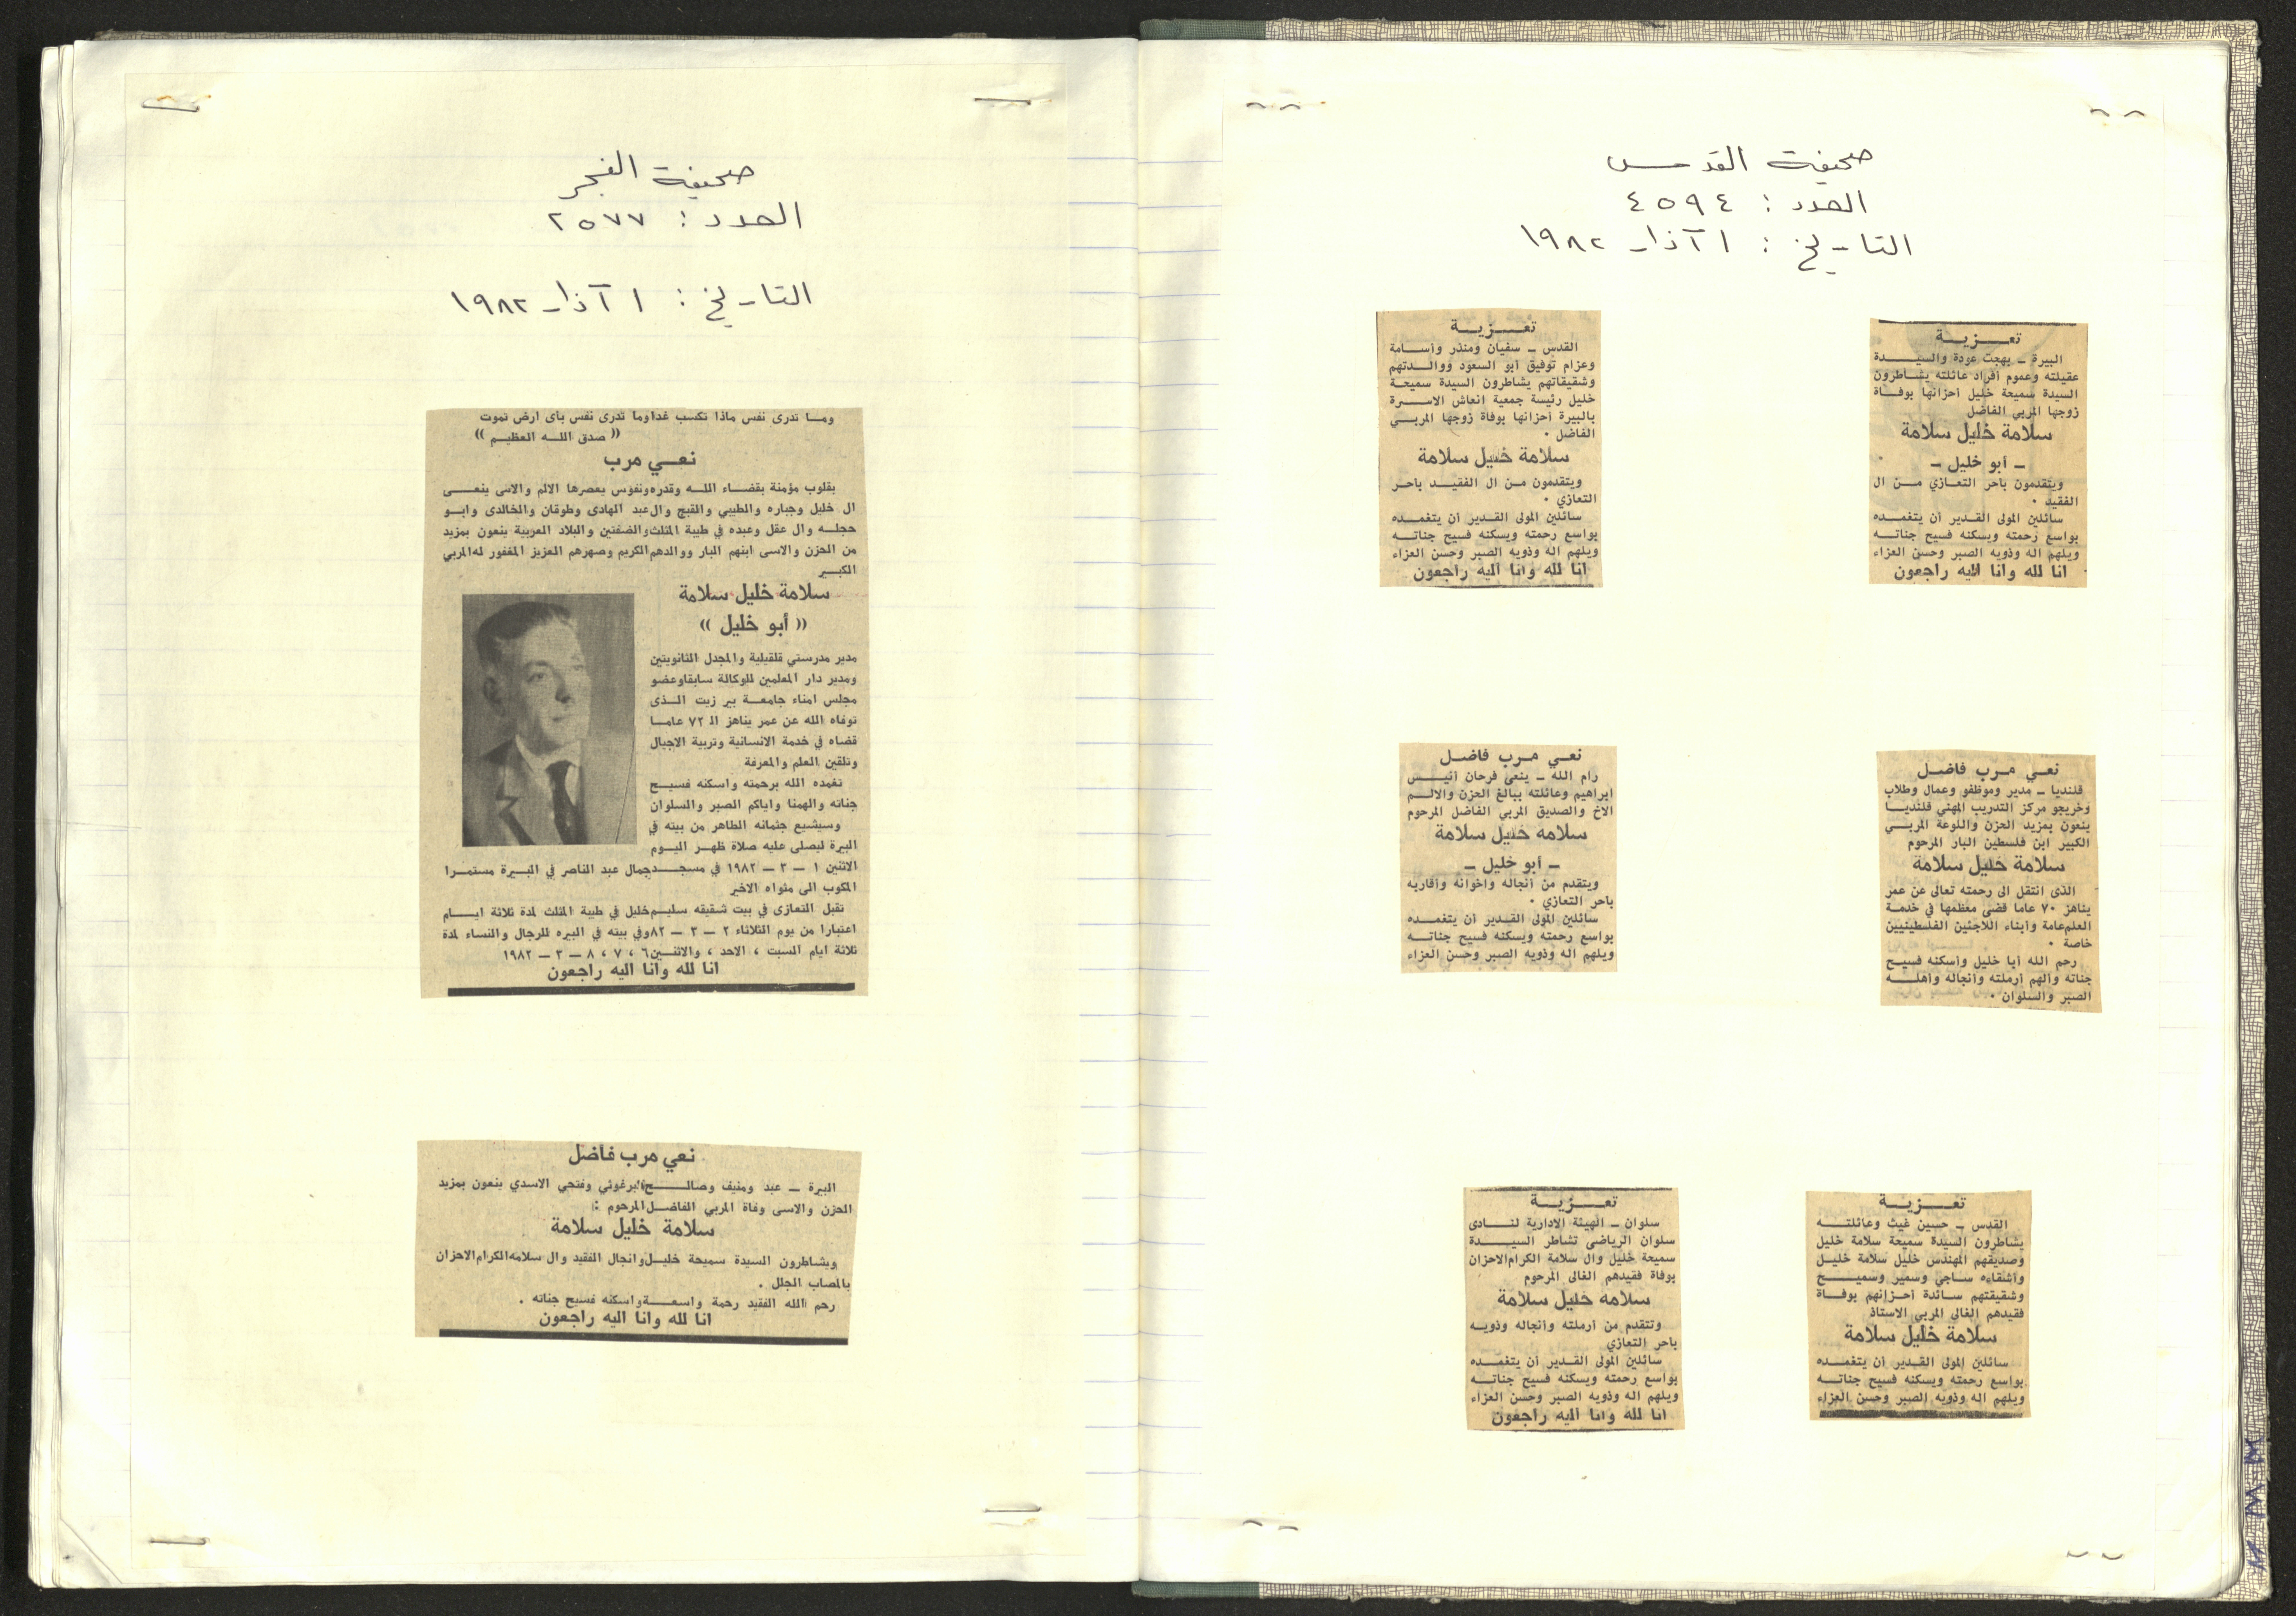 صحيفة القدس
العدد : ٤٥٩٤
التاريخ : ١ آذار ١٩٨٢
تعزية
البيرة – بهجت عودة والسيدة
عقيلته وعموم أفراد عائلته يشاطرون
السيدة سميحة خليل أحزانها بوفاة
زوجها المربي الفاضل
سلامة خليل سلامة
– أبو خليل –
ويتقدمون باحر التعازي من ال
الفقيد ٠
سائلين المولى القدير أن يتغمده
بواسع رحمته ويسكنه فسيح جناته
ويلهم اله وذويه الصبر وحسن العزاء
انا لله وانا اليه راجعون
تعزية
القدس – سفيان ومنذر وأسامة
وعزام توفيق أبو السعود ووالدتهم
وشقيقاتهم يشاطرون السيدة سميحة
خليل رئيسة جمعية انعاش الاسرة
بالبيرة أحزانها بوفاة زوجها المربي
الفاضل ٠
سلامة خليل سلامة
ويتقدمون من ال الفقيد باحر
التعازي ٠
سائلين المولى القدير أن يتغمده
بواسع رحمته ويسكنه فسيح جناته
ويلهم اله وذويه الصبر وحسن العزاء
انا لله وانا اليه راجعون
نعي مرب فاضل
قلنديا – مدير وموظفو وعمال وطلاب
وخريجو مركز التدريب المهني قلنديا
ينعون بمزيد الحزن واللوعة المربي
الكبير ابن فلسطين البار المرحوم
سلامة خليل سلامة
الذى انتقل الى رحمته تعالى عن عمر
يناهز ٧٠ عاما قضى معظمها في خدمة
العلم عامة وأبناء اللاجئين الفلسطينيين
خاصة ٠
رحم الله أبا خليل وأسكنه فسيح
جناته وألهم أرملته وأنجاله وأهله
الصبر والسلوان ٠
نعي مرب فاضل
رام الله – ينعى فرحان أنيس
ابراهيم وعائلته ببالغ الحزن والالم
الاخ والصديق المربي الفاضل المرحوم
سلامه خليل سلامة
– أبو خليل –
ويتقدم من أنجاله واخوانه وأقاربه
باحر التعازي ٠
سائلين المولى القدير أن يتغمده
بواسع رحمته ويسكنه فسيح جناته
ويلهم اله وذويه الصبر وحسن العزاء
تعزية
القدس – حسين غيث وعائلته
يشاطرون السيدة سميحة سلامة خليل
وصديقهم المهندس خليل سلامة خليل
وأشقاءه ساجي وسمير وسميح
وشقيقتهم سائدة أحزانهم بوفاة
فقيدهم الغالى المربي الاستاذ
سلامة خليل سلامة
سائلين المولى القدير أن يتغمده
بواسع رحمته ويسكنه فسيح جناته
ويلهم اله وذويه الصبر وحسن العزاء
تعزية
سلوان – الهيئة الادارية لنادى
سلوان الرياضى تشاطر السيدة
سميحة خليل وال سلامة الكرام الاحزان
بوفاة فقيدهم الغالى المرحوم
سلامه خليل سلامة
وتتقدم من أرملته وأنجاله وذويه
باحر التعازي
سائلين المولى القدير أن يتغمده
بواسع رحمته ويسكنه فسيح جناته
ويلهم اله وذويه الصبر وحسن العزاء
انا لله وانا اليه راجعون
صحيفة الفجر
العدد : ٢٥٧٧
التاريخ : ١ آذار ١٩٨٢
وما تدرى نفس ماذا تكسب غدا وما تدرى نفس بأى ارض تموت
(( صدق الله العظيم ))
نعي مرب
بقلوب مؤمنة بقضاء الله وقدره ونفوس يعصرها الالم والاسى ينعى
ال خليل وجباره والطيبي والقبج وال عبد الهادى وطوقان والخالدى وابو
حجله وال عقل وعبده في طيبة المثلث والضفتين والبلاد العربية ينعون بمزيد
من الحزن والاسى ابنهم البار ووالدهم الكريم وصهرهم العزيز المغفور له المربي
الكبير
سلامة خليل سلامة
(( أبو خليل ))
مدير مدرستي قلقيلية والمجدل الثانويتين
ومدير دار المعلمين للوكالة سابقا وعضو
مجلس امناء جامعة بير زيت الذى
توفاه الله عن عمر يناهز الـ ٧٢ عاما
قضاه في خدمة الانسانية وتربية الاجيال
وتلقين العلم والمعرفة
تغمده الله برحمته واسكنه فسيح
جناته والهمنا واياكم الصبر والسلوان
وسيشيع جثمانه الطاهر من بيته في
البيرة ليصلى عليه صلاة ظهر اليوم
الاثنين ١ – ٣ – ١٩٨٢ في مسجد جمال عبد الناصر في البيرة مستمرا
الموكب الى مثواه الاخير
تقبل التعازى في بيت شقيقه سليم خليل في طيبة المثلث لمدة ثلاثة ايام
اعتبارا من يوم الثلاثاء ٢ – ٣ – ٨٢ وفي بيته في البيره للرجال والنساء لمدة
ثلاثة ايام السبت ، الاحد ، والاثنين ٦ ، ٧ ، ٨ – ٣ – ١٩٨٢
انا لله وانا اليه راجعون
نعي مرب فاضل
البيرة – عبد ومنيف وصالح البرغوثي وفتحي الاسدي ينعون بمزيد
الحزن والاسى وفاة المربي الفاضل المرحوم :
سلامة خليل سلامة
ويشاطرون السيدة سميحة خليل وانجال الفقيد وال سلامه الكرام الاحزان
بالمصاب الجلل .
رحم الله الفقيد رحمة واسعة واسكنه فسيح جناته .
انا لله وانا اليه راجعون